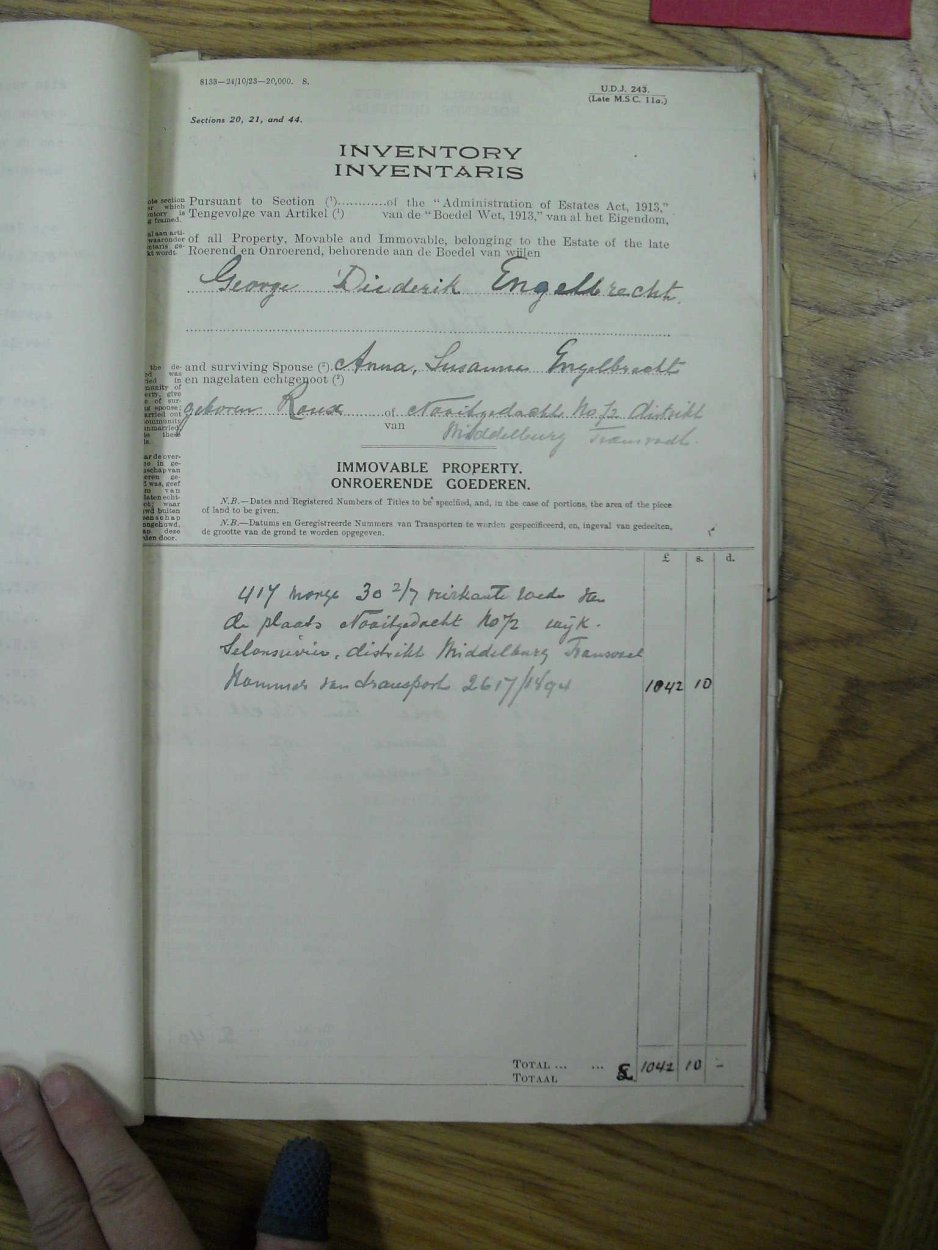 8133—24/10/23—20,000. S.
U.D.J. 243.
(Late M.S.C. 11a.)
Sections 20, 21, and 44.
INVENTORY
INVENTARIS
Pursuant to Section (¹)............of the “Administration of Estates Act, 1913,”
Tengevolge van Artikel (¹) van de “Boedel Wet, 1913,” van al het Eigendom,
of all Property, Movable and Immovable, belonging to the Estate of the late
Roerend en Onroerend, behorende aan de Boedel van wijlen
George Diederik Engelbrecht.
and surviving Spouse (²). Anna, Susanna Engelbrecht
en nagelaten echtgenoot (²)
geboren Roux of Nooitgedacht No 72 distrikt
van Middelburg Transvaal.
IMMOVABLE PROPERTY.
ONROERENDE GOEDEREN.
N.B.—Dates and Registered Numbers of Titles to be specified, and, in the case of portions, the area of the piece
of land to be given.
N.B.—Datums en Geregistreerde Nummers van Transporten te worden gespecificeerd, en, ingeval van gedeelten,
de grootte van de grond te worden opgegeven.
£ s. d.
417 morge 30 2/7 vierkante roede van
de plaats Nooitgedacht No 72 wijk.
Selonsrivier, distrikt Middelburg Transvaal
Nommer van transport 2617/1894 1042 10
TOTAL ... ... £ 1042 10 -
TOTAAL